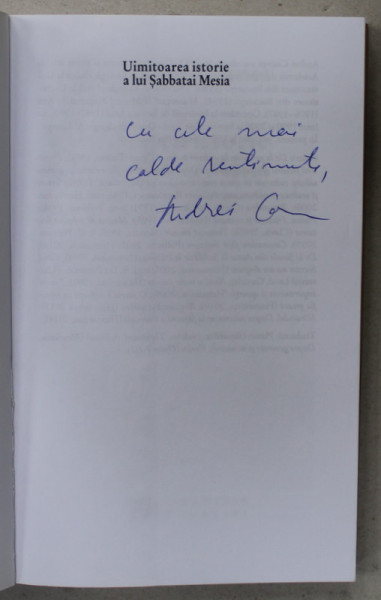 Uimitoarea istorie
a lui Șabbatai Mesia
Cu cele mai
calde sentimente,
Andrei